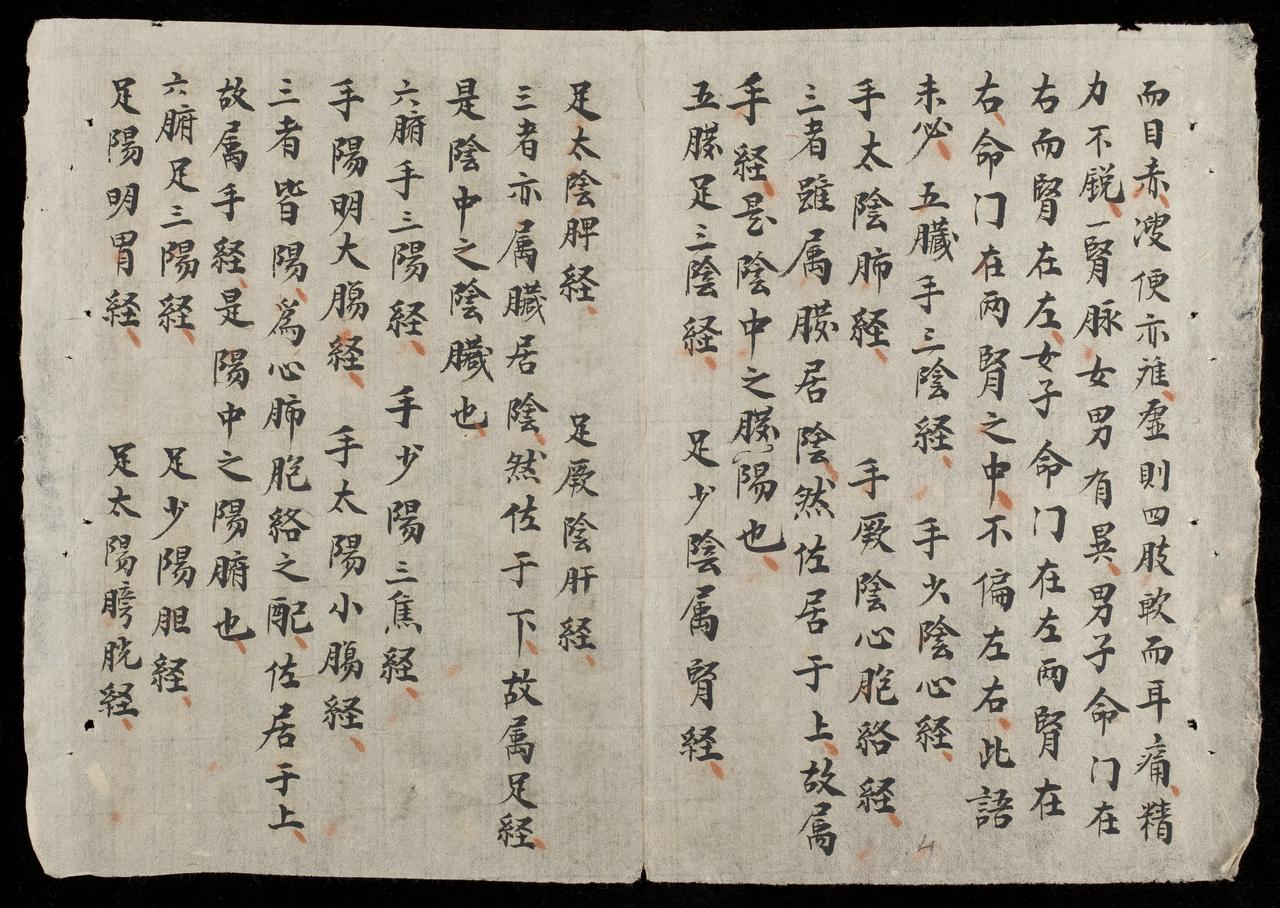 而目赤、溲便亦难、虚則四肢軟而耳痛、精
力不銳、一腎脉、女男有異、男子命门在
右而腎在左、女子命门在左两腎在
右、命门在两腎之中、不偏左右、此語
未必、五臟手三陰経、手少陰心経、
手太陰肺経、手厥陰心胞絡経、
三者雖属臟居陰、然佐居于上、故属
手経、是陰中之陽也、
五臟足三陰経、足少陰属腎経、
足太陰脾経、足厥陰肝経、
三者亦属臟居陰、然佐于下、故属足経、
是陰中之陰臟也、
六腑手三陽経、手少陽三焦経、
手陽明大腸経、手太陽小腸経、
三者皆陽、為心肺胞絡之配、佐居于上、
故属手経、是陽中之陽腑也、
六腑足三陽経、足少陽胆経、
足陽明胃経、足太陽膀胱経、